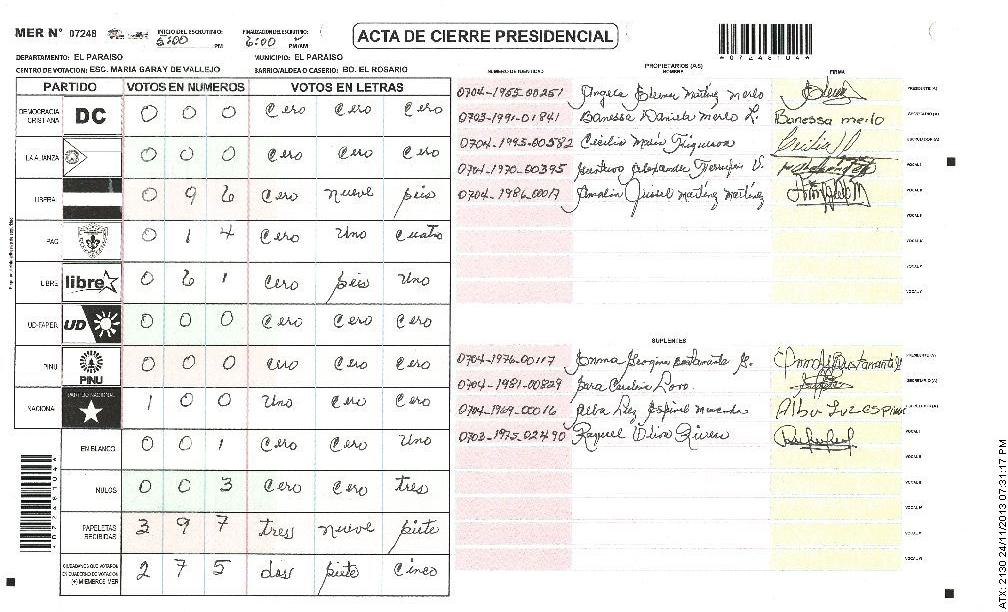 MER N° 07248 INICIO DEL ESCRUTINIO: 5:00 PM FINALIZACION DEL ESCRUTINIO: 6:00 PM/AM
ACTA DE CIERRE PRESIDENCIAL
DEPARTAMENTO: EL PARAISO MUNICIPIO: EL PARAISO
CENTRO DE VOTACION: ESC. MARIA GARAY DE VALLEJO BARRIO/ALDEA O CASERIO: BO. EL ROSARIO
PARTIDO VOTOS EN NUMEROS VOTOS EN LETRAS
DEMOCRACIA CRISTIANA DC 0 0 0 Cero Cero Cero
LA ALIANZA 0 0 0 Cero Cero Cero
LIBERAL 0 9 6 Cero nueve seis
PAC 0 1 4 Cero Uno Cuatro
LIBRE libre 0 6 1 Cero seis Uno
UD-FAPER UD 0 0 0 Cero Cero Cero
PINU PINU 0 0 0 Cero Cero Cero
NACIONAL PARTIDO NACIONAL 1 0 0 Uno Cero Cero
EN BLANCO 0 0 1 Cero Cero Uno
NULOS 0 0 3 Cero Cero tres
PAPELETAS RECIBIDAS 3 9 7 tres nueve siete
CIUDADANOS QUE VOTARON EN CUADERNO DE VOTACION (+) MIEMBROS MER 2 7 5 dos siete Cinco
PROPIETARIOS (AS)
NUMERO DE IDENTIDAD NOMBRE FIRMA
0704-1965-00251 Martinez Merlo PRESIDENTE (A)
0703-1991-01841 Banessa Daniela Merlo L. Banessa merlo SECRETARIO (A)
0704-1995-00582 Cecilia Maria Figueroa ESCRUTADOR (A)
0704-1970-00395 Gustavo Alexander V. VOCAL I
0704-1986-00017 Amalia Martinez Martinez VOCAL II
SUPLENTES
0704-1976-00117 Emma Georgina Bustamante G. PRESIDENTE (A)
0704-1981-00829 Sara Carolina SECRETARIO (A)
0704-1969-00016 Alba Luz Espinal Alba Luz Espinal
0703-1975-02490 Raquel Rivera VOCAL I
ATX: 2130 24/11/2013 07:31:17 PM